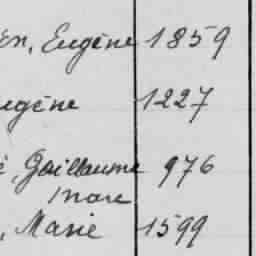 en, Eugène 1859
ugène 1227
é, Guillaume 976
Marc
, Marie 1599